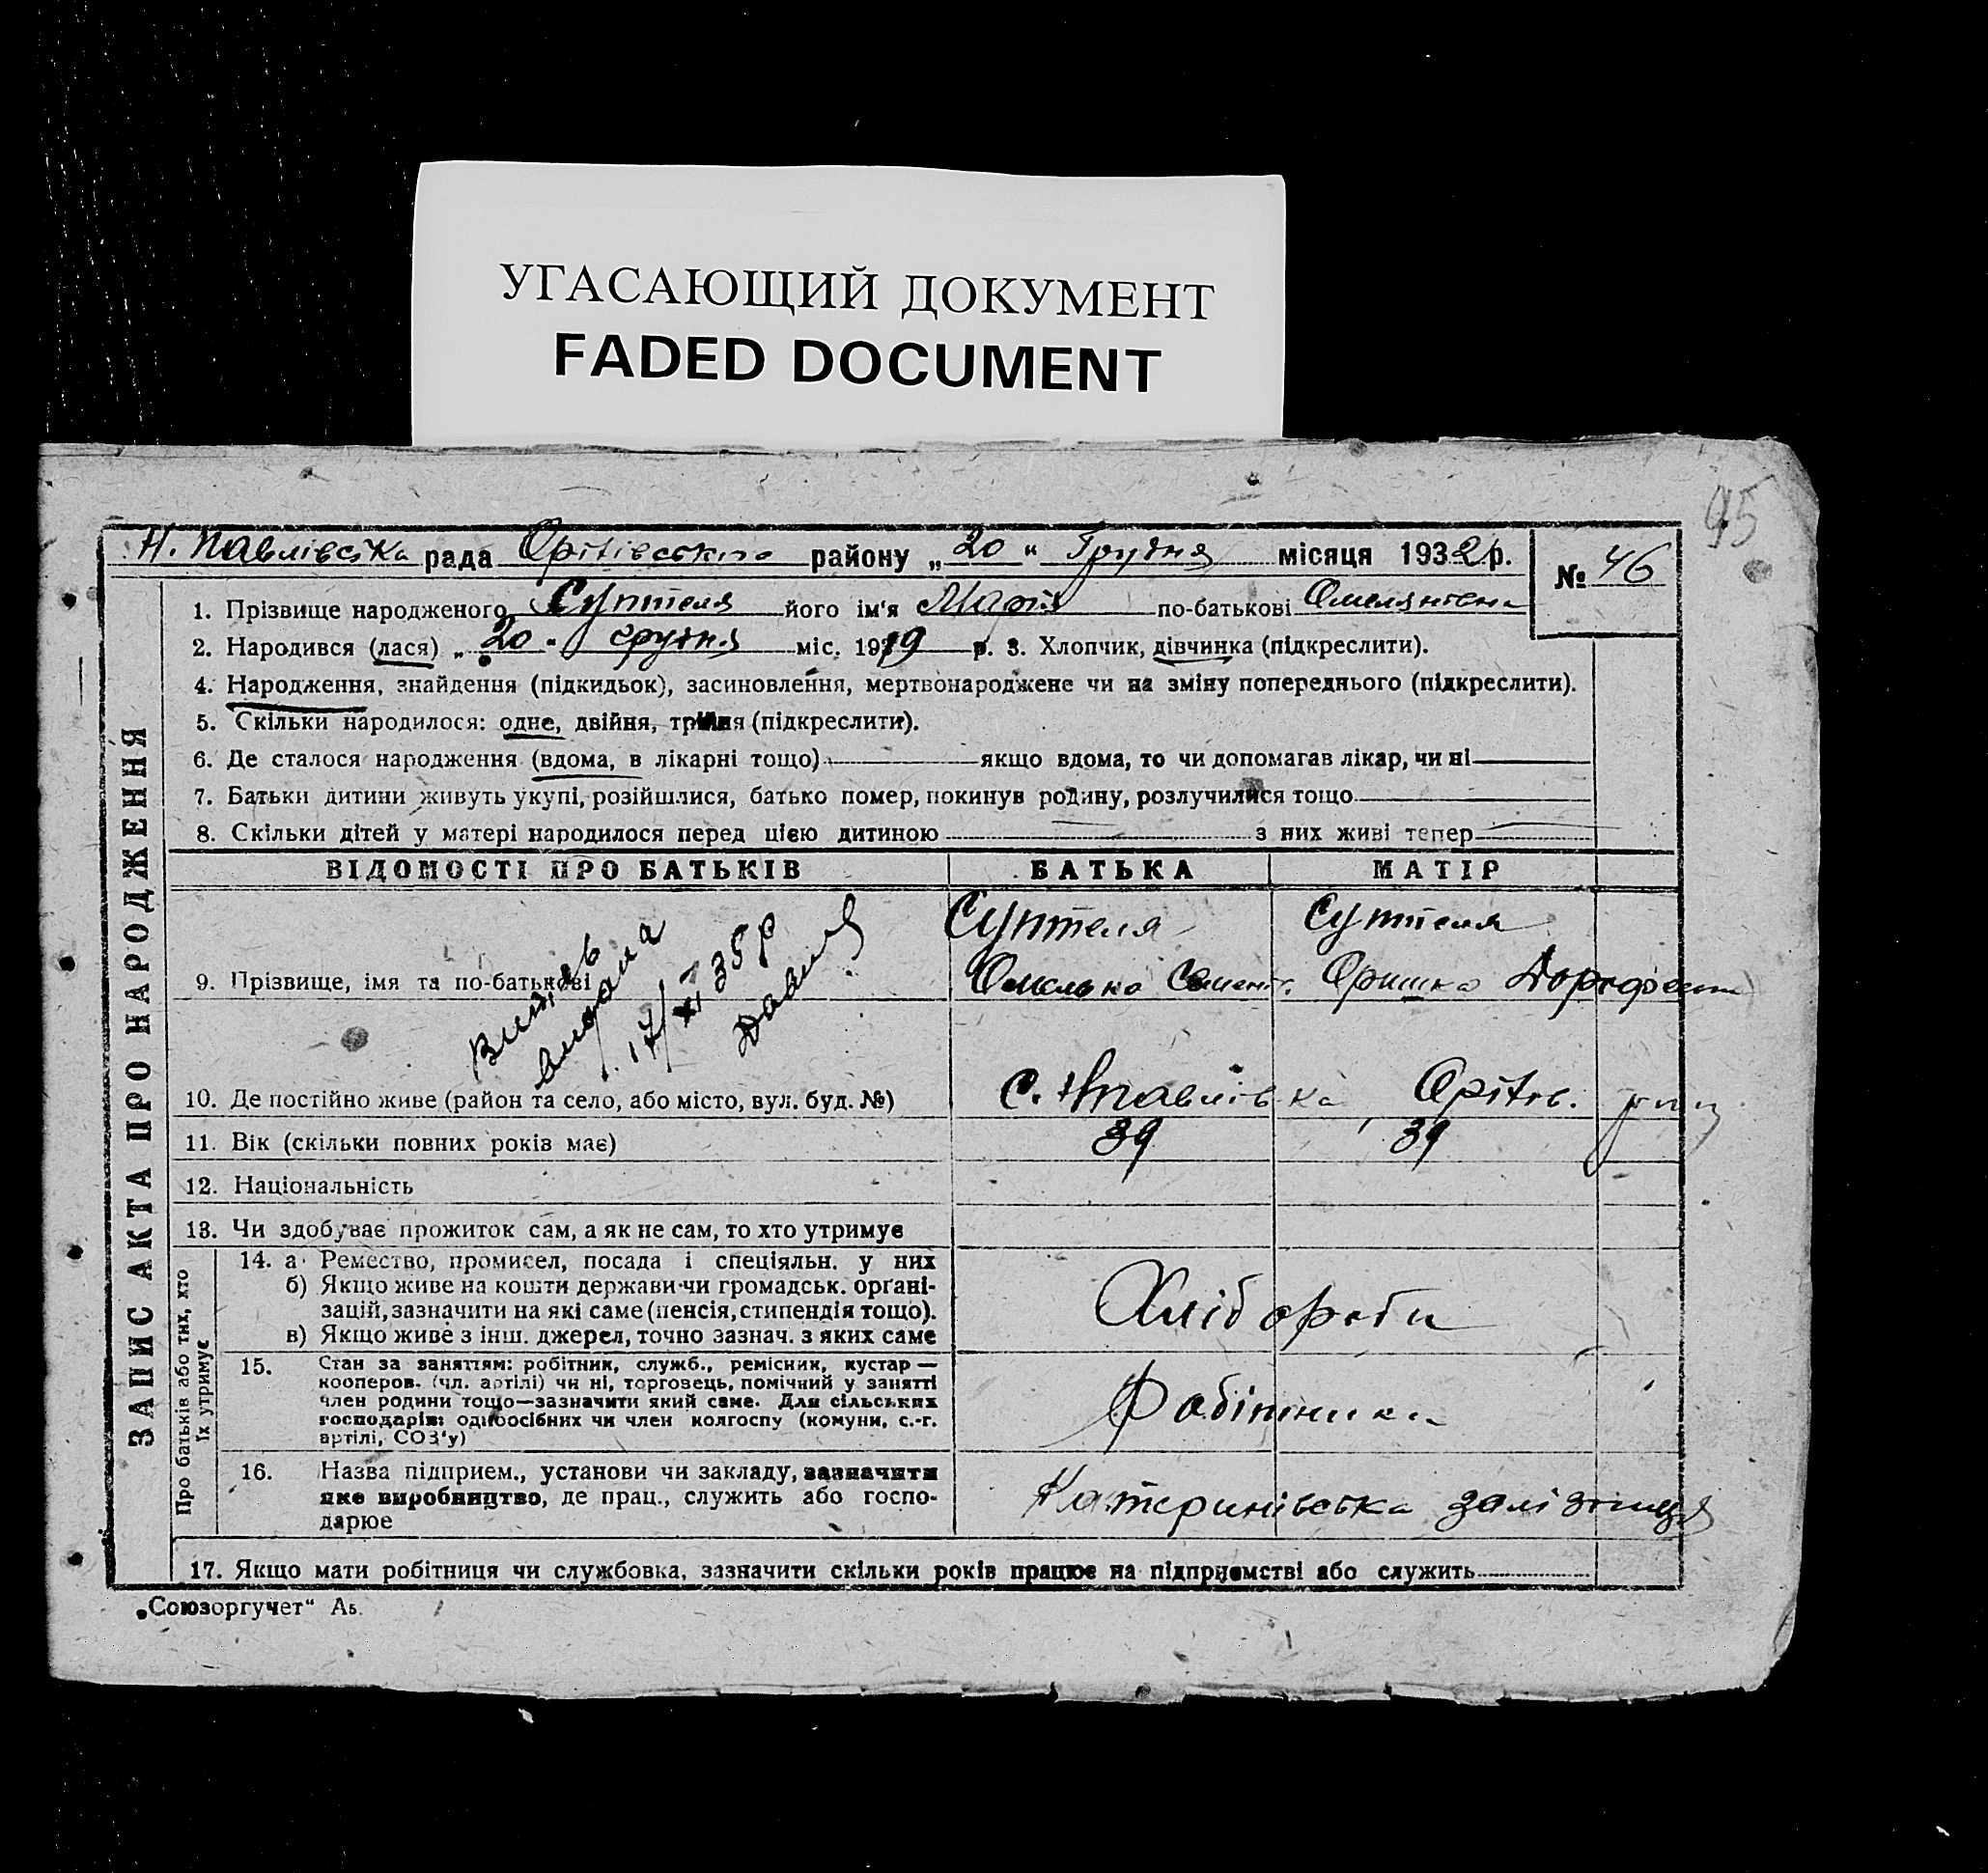 УГАСАЮЩИЙ ДОКУМЕНТ
FADED DOCUMENT
95
Н. Павлівська рада Орітівського району „20“ Грудня місяця 1932 р.
№ 46
1. Прізвище народженого Суптеля його ім'я Марія по-батькові Омелянівна
2. Народився (лася) „20“ грудня міс. 1919 р. 3. Хлопчик, дівчинка (підкреслити).
4. Народження, знайдення (підкидьок), засиновлення, мертвонароджене чи на зміну попереднього (підкреслити).
5. Скільки народилося: одне, двійня, трійня (підкреслити).
6. Де сталося народження (вдома, в лікарні тощо) якщо вдома, то чи допомагав лікар, чи ні
7. Батьки дитини живуть укупі, розійшлися, батько помер, покинув родину, розлучилися тощо
8. Скільки дітей у матері народилося перед цією дитиною з них живі тепер
ЗАПИС АКТА ПРО НАРОДЖЕННЯ
ВІДОМОСТІ ПРО БАТЬКІВ БАТЬКА МАТІР
Суптеля Суптеля
9. Прізвище, імя та по-батькові Омелько Семен. Оришка
17/XI 35 р
10. Де постійно живе (район та село, або місто, вул. буд. №) с. Нпавлівка Орітів.
11. Вік (скільки повних років має) 39 39
12. Національність
13. Чи здобуває прожиток сам, а як не сам, то хто утримує
Про батьків або тих, хто їх утримує
14. а Ремество, промисел, посада і спеціяльн. у них
б) Якщо живе на кошти держави чи громадськ. орґані-
зацій, зазначити на які саме (пенсія, стипендія тощо).
в) Якщо живе з інш. джерел, точно зазнач. з яких саме
Хлібороби
15. Стан за заняттям: робітник, служб., ремісник, кустар —
кооперов. (чл. артілі) чи ні, торговець, помічний у занятті
член родини тощо—зазначити який саме. Для сільських
господарів: одноосібних чи член колгоспу (комуни, с.-г.
артілі, СОЗ'у)
Робітники
16. Назва підприєм., установи чи закладу, зазначити
яке виробництво, де прац., служить або госпо-
дарює
Катеринівська залізниця
17. Якщо мати робітниця чи службовка, зазначити скільки років працює на підприємстві або служить
„Союзоргучет“ Аб.